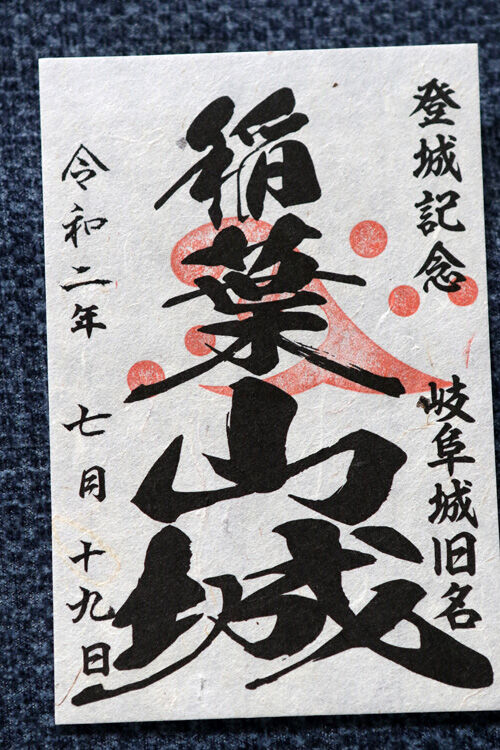 登城記念 岐阜城旧名
稲葉山城
令和二年 七月 十九日